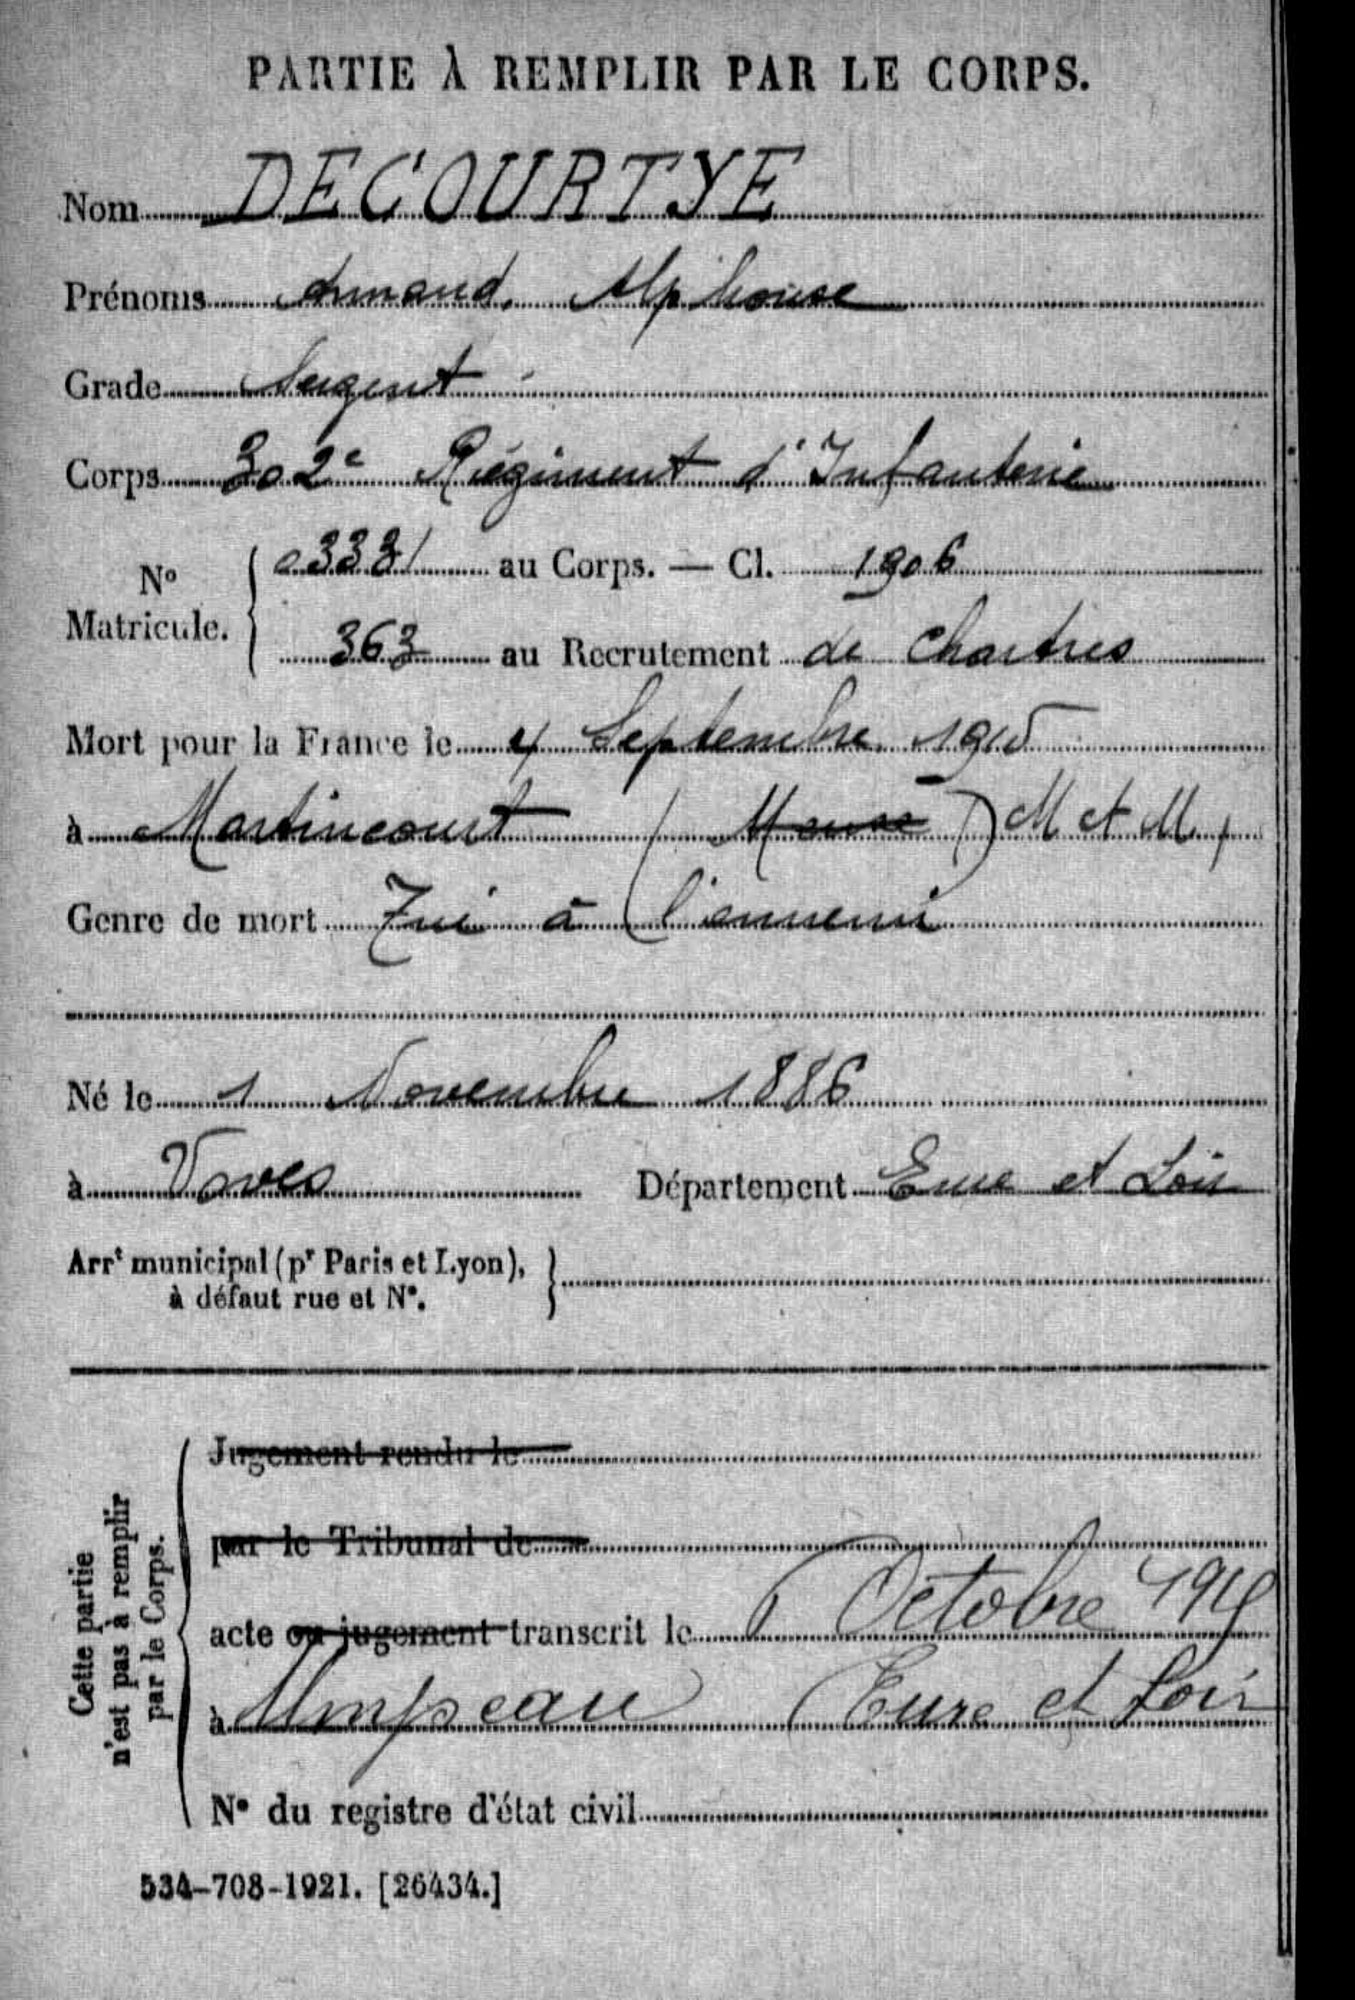 PARTIE À REMPLIR PAR LE CORPS.
Nom DECOURTYE
Prénoms Armand, Alphonse
Grade Sergent
Corps 302e Régiment d'Infanterie
No Matricule. { 03331 au Corps. — Cl. 1906
363 au Recrutement de Chartres
Mort pour la France le 4 Septembre 1915
à Martincourt (Meuse) M et M,
Genre de mort Tué à l'ennemi
Né le 1 Novembre 1886
à Voves Département Eure et Loir
Arrt municipal (pr Paris et Lyon), à défaut rue et No. }
Cette partie n'est pas à remplir par le Corps.
Jugement rendu le
par le Tribunal de
acte ou jugement transcrit le Octobre
à Umpeau Eure et Loir
No du registre d'état civil
534-708-1921. [26434.]